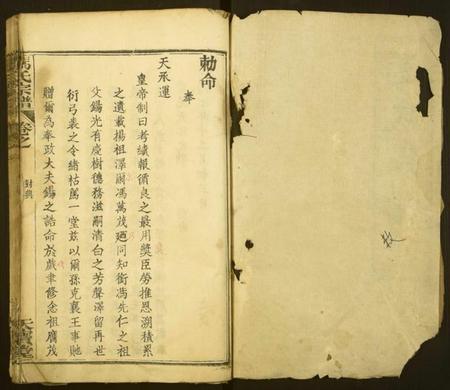 勅命
奉
天承運
皇帝制曰考績報循良之最用獎臣勞推恩溯積累
之遺載揚祖澤爾馮萬茂廼同知銜馮先仁之祖
父錫光有慶樹德務滋嗣清白之芳聲澤留再世
衍弓裘之令緒祜篤一堂茲以爾孫克襄王事貤
贈爾為奉政大夫錫之誥命於戲聿修念祖膺茂
馮氏宗譜
卷之
封典